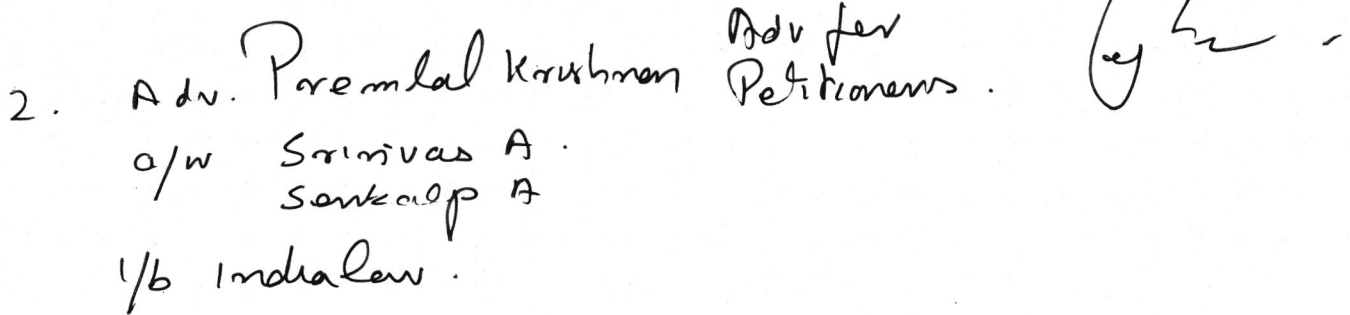 Adv for
2. Adv. Premlal Krishnan Petitioners.
a/w Srinivas A.
Sankalp A
i/b Indialaw.